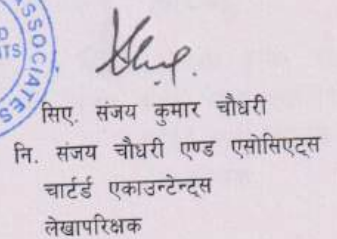 ASSOCIATES
सिए. संजय कुमार चौधरी
नि. संजय चौधरी एण्ड एसोसिएट्स
चार्टर्ड एकाउन्टेन्ट्स
लेखापरिक्षक